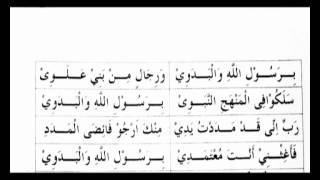 بِرَسُوْلِ اللهِ وَالْبَدَوِيْ وَرِجَالٍ مِنْ بَنِيْ عَلَوِيْ
سَلَكُوْا فِى الْمَنْهَجِ النَّبَوِىْ بِرَسُوْلِ اللهِ وَالْبَدَوِيْ
رَبِّ اِنِّى قَدْ مَدَدْتُ يَدِيْ مِنْكَ اَرْجُوْ فَائِضَ الْمَدَدِ
فَأَغِثْنِيْ أَنْتَ مُعْتَمَدِيْ بِرَسُوْلِ اللهِ وَالْبَدَوِيْ